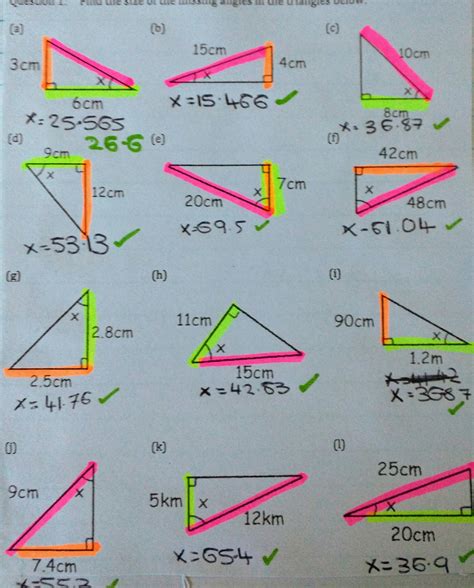 Question 1: Find the size of the missing angles in the triangles below.
(a) (b) (c)
3cm x 6cm
15cm x 4cm
10cm x 8cm
x=25.565
26.6
x=15.466 ✓
x=36.87 ✓
(d) (e) (f)
9cm x 12cm
20cm x 7cm
42cm x 48cm
x=53.13 ✓
x=69.5 ✓
x=61.04 ✓
(g) (h) (i)
x 2.8cm 2.5cm
11cm x 15cm
90cm x 1.2m
x=41.76 ✓
x=42.83 ✓
x=36.87 ✓
(j) (k) (l)
9cm x 7.4cm
5km x 12km
25cm x 20cm
x=55.3
x=65.4 ✓
x=36.9 ✓